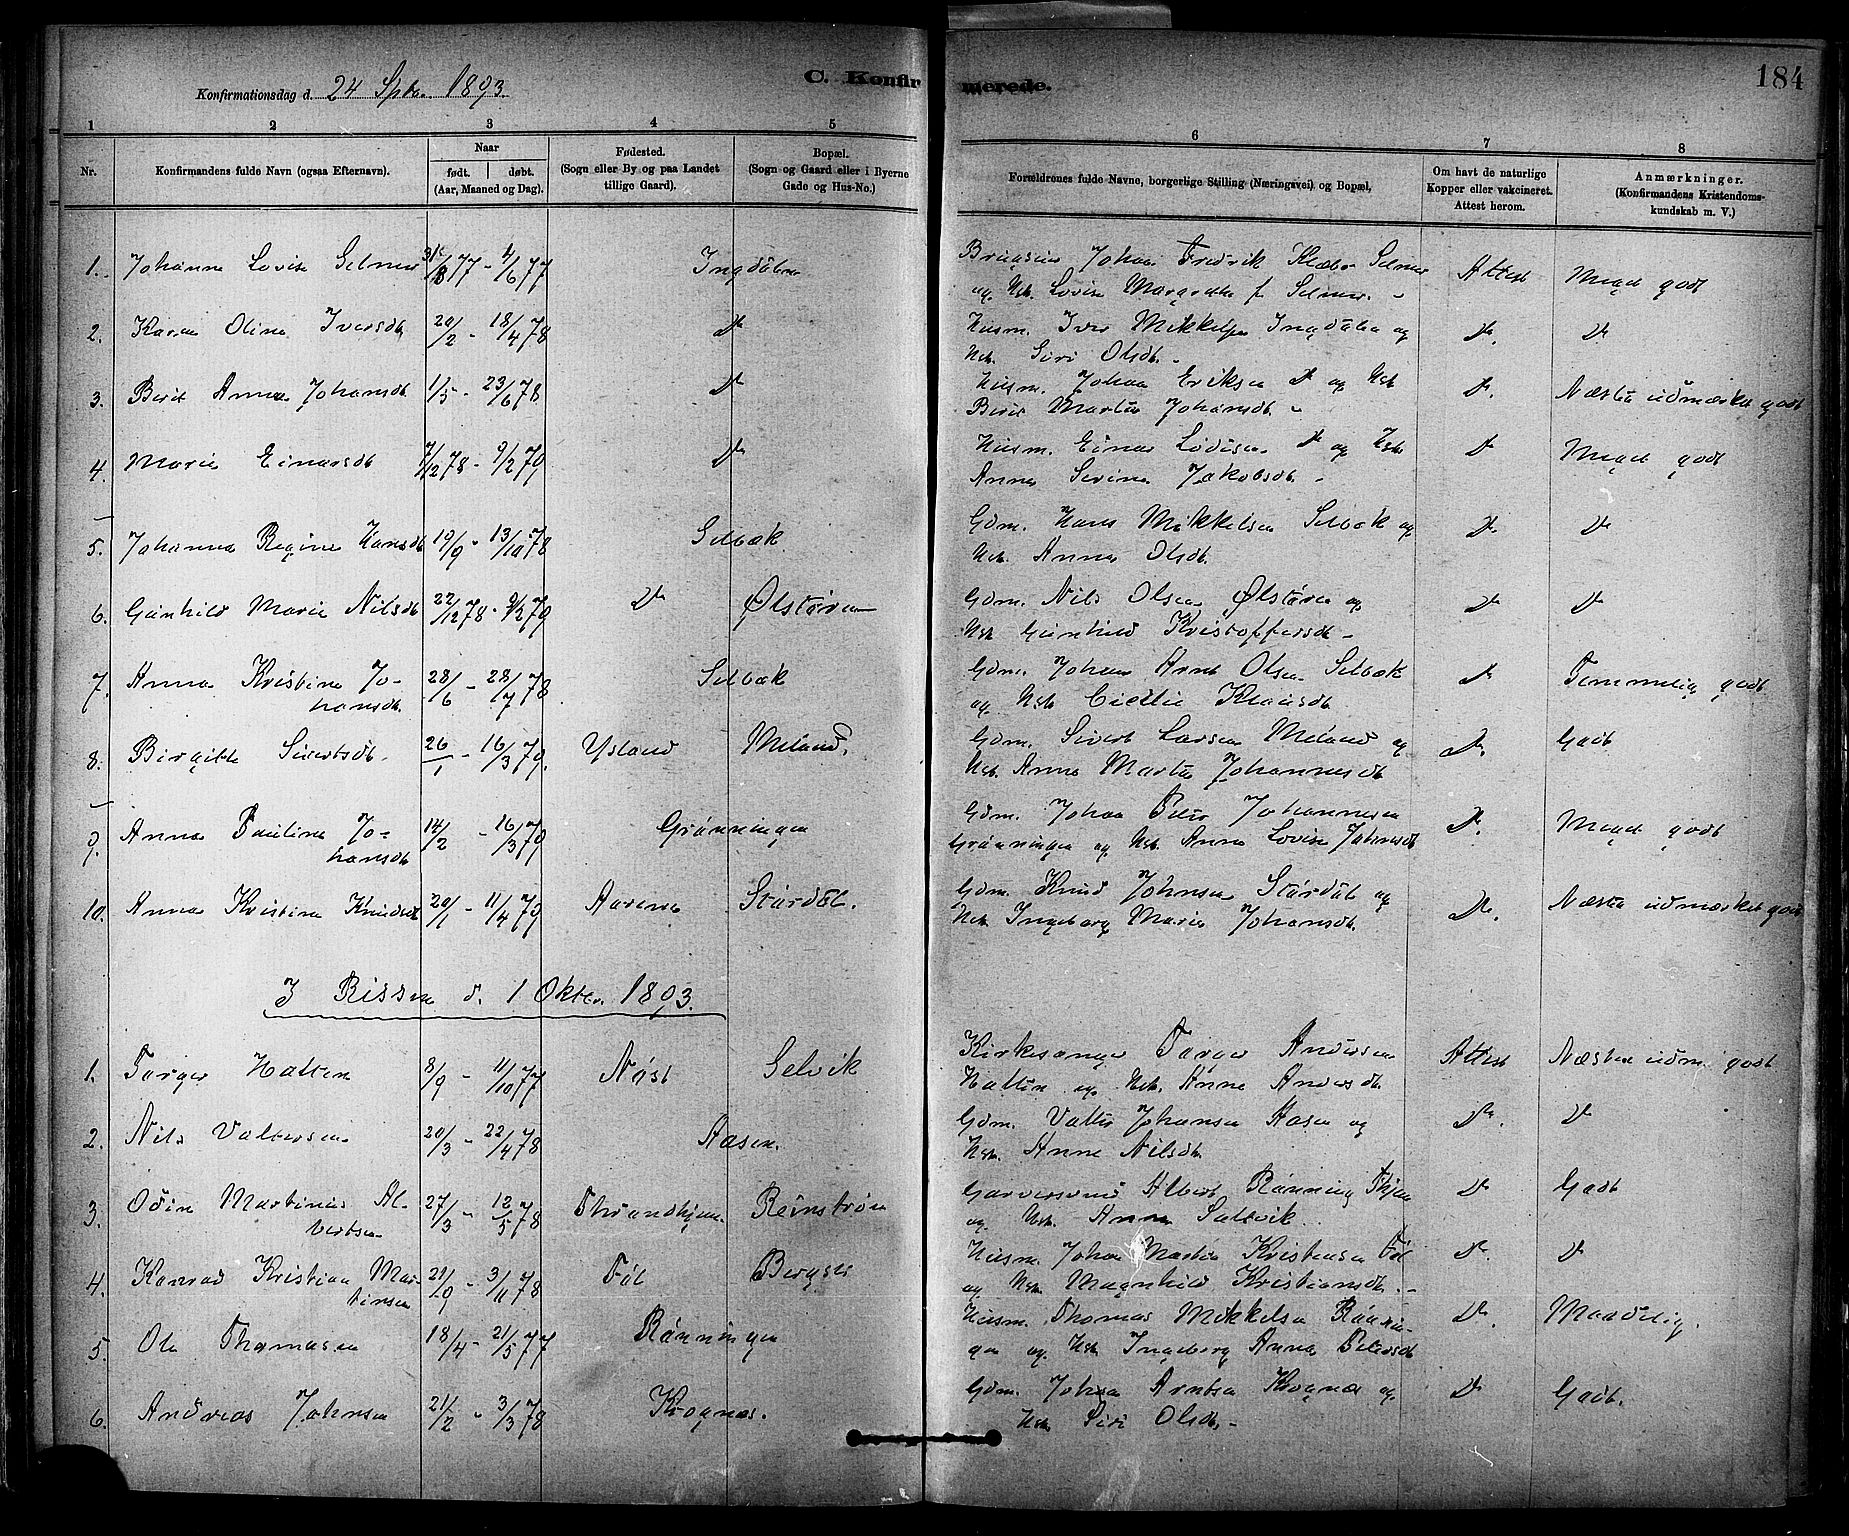 C. Konfirmerede.
184
Konfirmationsdag d. 24 Sptbr. 1893.
1 2 3 4 5 6 7 8
Nr. Konfirmandens fulde Navn (ogsaa Efternavn). Naar født. døbt. (Aar, Maaned og Dag). Fødested. (Sogn eller By og paa Landet tillige Gaard). Bopæl. (Sogn og Gaard eller i Byerne Gade og Hus-No.) Forældrenes fulde Navne, borgerlige Stilling (Næringsvei) og Bopæl, Om havt de naturlige Kopper eller vakcineret. Attest herom. Anmærkninger. (Konfirmandens Kristendomskundskab m. V.)
1. Johanna Lovise Selmer 4/6 77 Ingdalen Johan Fredrik Klæbo Selmer Attest Meget godt
og Hst. Lovise Margrethe f. Selmer.
2. Karen Olina Iversdt. 20/2 - 18/4 78 Do Husm. Iver Mikkelsen Ingdalen og Do. Do
Hst. Siri Olsdt.
3. Berit Anna Johansdt 1/5 - 23/6 78 Do Husm. Johan Eriksen Do og Hst Do. Næsten udmærket godt
Berit Marta Johansdt.
4. Marie Einarsdt 7/12 78 - 9/2 79 Do Husm. Einar Do og Hst. Do Meget godt
Anna Serine Jakobsdt.
5. Johanna Regine Hansdt 19/9 - 13/10 78 Selbæk Gdm. Hans Mikkelsen Selbæk og Do Do
Hst. Anna Olsdt.
6. Gunhild Marie Nilsdt 22/12 78 - 9/2 79 Do Ølstøren Gdm. Nils Olsen Ølstøren og Do Do
Hst Gunhild Kristoffersdt.
7. Anna Kristine Jo-hansdt. 28/6 - 28/7 78 Selbæk Gdm. Johan Arnt Olsen Selbæk Do Temmelig godt
og Hst Klausdt.
8. Birgitte Sivertsdt. 26/1 - 16/3 79. Ysland Meland. Gdm. Sivert Larsen Meland og Do. Godt
Hst. Anna Marta Johannesdt
9. Anna Paulina Jo-hansdt 14/2 - 16/3 79 Grønningen Gdm. Johan Peter Johannesen Do. Meget godt
Grønningen og Hst. Anna Lovise Johansdt
10. Anna Kristine Knudsdt 20/1 - 11/4 79 Aarena Størdal. Gdm. Knud Johnsen Størdal og Do. Næsten udmærket godt
Hst Ingeborg Marie Johansdt.
I Rissen d. 1 Oktbr. 1893.
1. Torger Hatten 8/9 - 11/10 77 Nøst Selvik Kirkesanger Torger Andersen Attest Næsten udm. godt
Hatten og Hst. Anne Andersdt
2. Nils Valtersen 20/3 - 22/4 78 Aasen. Gdm. Valter Johansen Aasen og Do. Do
Hst. Anne Nilsdt.
3. Odin Martinus Al-bertsen 27/3 - 12/5 78 Throndhjem. Reinstrøen Garversvend Albert Rønning Thjem Do Godt
og Hst. Anna Saltvik.
4. Konrad Kristian Mar-tinsen 21/9 - 3/11 78 Føl Husm. Johan Martin Kristensen Føl Do. Do
og Hst Magnhild Kristiansdt.
5. Ole Thomasen 18/4 - 21/5 77 Rønningen Husm. Thomas Mikkelsen Rønnin- Do. Maadelig.
gen og Hst Ingeborg Anna Petersdt
6. Andreas Johnsen 21/2 - 3/3 78 Krognes. Gdm. Johan Arntsen Krognes og Do Godt.
Hst Siri Olsdt.